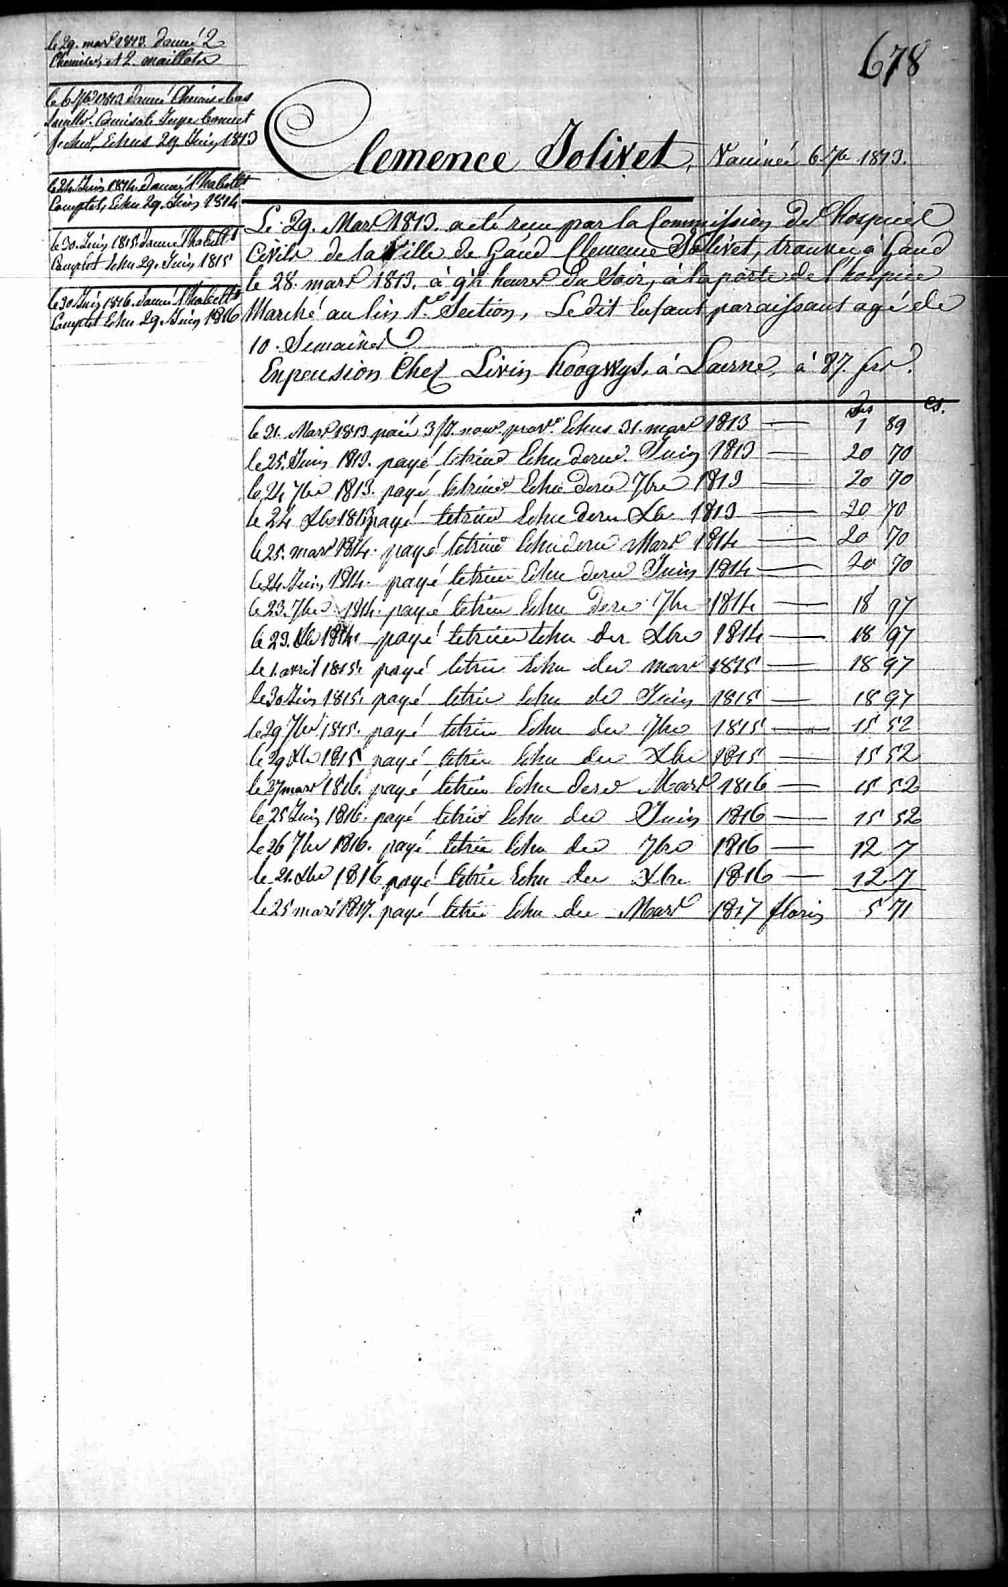 678
le 29. mars 1813 donné 2
Chemises et 2. maillots
le 6 7bre 1813 donné Chemise bas
Soulier Camisole Jupe bonnet
fichu, Echus 29 Juin 1813
le 24 Juin 1814. donné l'habillt
Complet, Echu 29. Juin 1814
le 30. Juin 1815 donné l'habillt
Complet Echu 29. Juin 1815
le 30 Juin 1816. donné l'habillt
Complet Echu 29. Juin 1816
Clemence Jolivet, Vaccinée 6 7bre 1813.
Le 29. Mars 1813. a eté reçu par la Commission des hospices
Civils de la Ville de Gand Clemence Jolivet, trouvée à Gand
le 28. mars 1813. à 9½ heures du Soir, à la porte de l'hospice
Marché au lin 1e. Section, Ledit Enfant paraissant agé de
10. Semaines
En pension Chez Livin hoogwys, à Laerne, à 87. frs.
frs cs.
le 31. Mars 1813 paié 3/j. nour. prov. Echus 31. mars 1813 — 1 89
le 25. Juin 1813. payé letrim Echu derne. Juin 1813 — 20 70
le 24 7bre 1813. payé letrime Echu derne 7bre 1813 — 20 70
le 24 Xbre 1813 payé letrim Echu dern Xbre 1813 — 20 70
le 25. mars 1814. payé letrime Echu dern Mars 1814 — 20 70
le 24. Juin 1814. payé letrim Echu dern Juin 1814 — 20 70
le 23. 7bre 1814. payé letrim Echu dere 7bre 1814 — 18 97
le 23. Xbre 1814. payé letrim Echu der Xbre 1814 — 18 97
le 1. avril 1815. payé letrim Echu der mars 1815 — 18 97
le 30 Juin 1815. payé letrim Echu de Juin 1815 — 18 97
le 29 7bre 1815. payé letrim Echu der 7bre 1815 — 15 52
le 29 Xbre 1815 payé letrim Echu der Xbre 1815 — 15 52
le 27 mars 1816. payé letrim Echu dere Mars 1816 — 15 52
le 25 Juin 1816. payé letrim Echu der Juin 1816 — 15 52
le 26 7bre 1816. payé letrim Echu der 7bre 1816 — 12 7
le 21. Xbre 1816 payé letrim Echu der Xbre 1816 — 12 7
le 25 mars 1817. payé letrim Echu der Mars 1817 florins 5 71